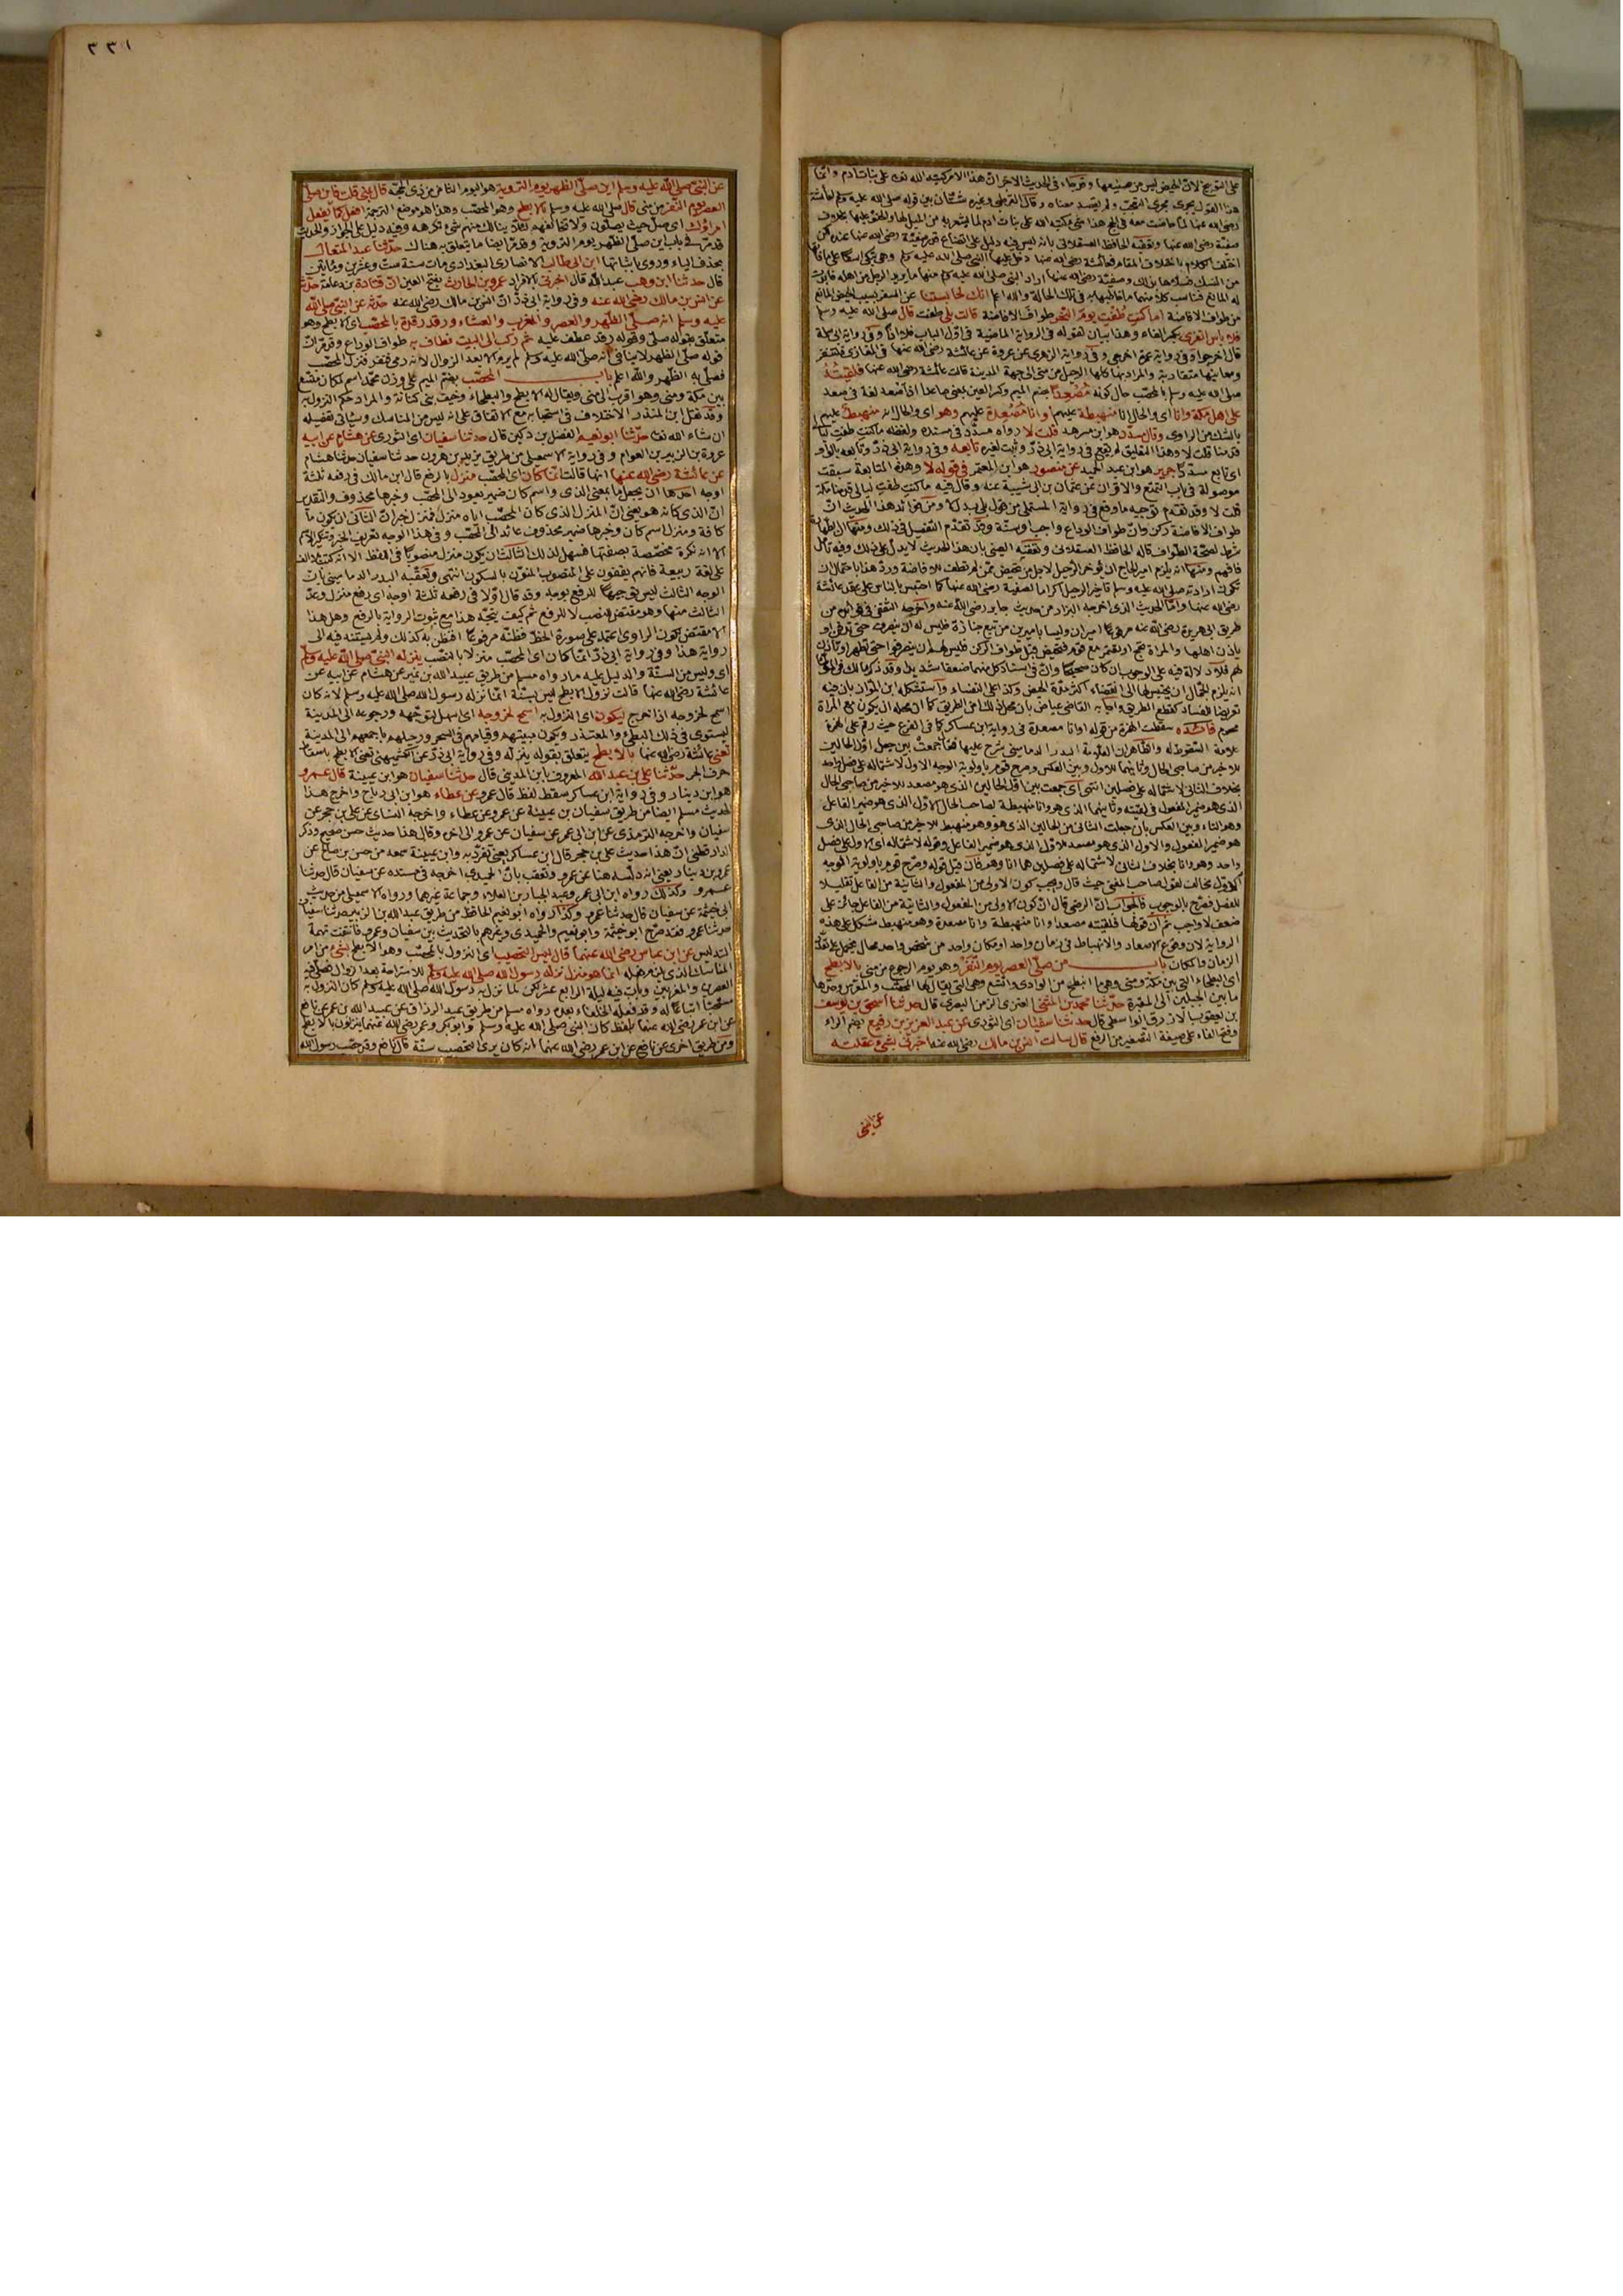 على التوبيخ لان الحيض ليس من صنيعها وقد جاء في الحديث الاخر ان هذا الامر كتبه الله تعالى على بنات ادم وانما
هذا القول يجرى مجرى التعجب ولم يقصد معناه وقال القرطبي وغيره شتان بين قوله صلى الله عليه وسلم لعائشة
رضى الله عنها لما حاضت معه في الحج هذا شئ كتبه الله على بنات ادم لما يشعر به من الميل لها والحنو عليها بخلاف
صفية رضى الله عنها وتعقبه الحافظ العسقلانى بانه ليس فيه دليل على اتضاع قدر صفية رضى الله عنها عنده لكن
اختلف الكلام باختلاف المقام فعائشة رضى الله عنها دخل عليها النبي صلى الله عليه وسلم وهى تبكى اسفا على ما فاتها
من النسك فسلاها بذلك وصفية رضى الله عنها اراد النبي صلى الله عليه وسلم منها ما يريد الرجل من اهله فابدت
له المانع فناسب كلا منهما ما خاطبها به في تلك الحالة والله اعلم انك لحابستنا عن السفر بسبب الحيض المانع
من طواف الافاضة اما كنت طفت يوم النحر طواف الافاضة قالت بلى طفت قال صلى الله عليه وسلم
فلا باس انفرى بكسر الفاء وهذا بيان لقوله في الرواية الماضية في اول الباب فلا اذا وفى رواية ابى سلمة
قال اخرجوا وفى رواية عمرة اخرجى وفى رواية الزهرى عن عروة عن عائشة رضى الله عنها في المغازى فلتنفر
ومعانيها متقاربة والمراد بها كلها الرحيل من منى الى جهة المدينة قالت عائشة رضى الله عنها فلقيته
صلى الله عليه وسلم بالمحصب حال كونه مصعدا بضم الميم وكسر العين بمعنى صاعدا اذ اصعد لغة في صعد
على اهل مكة وانا اى والحال انا منهبطة عليهم او انا مصعدة عليهم وهو اى والحال انه منهبط عليهم
بالشك من الراوى وقال مسدد هو ابن مسرهد قلت لا رواه مسدد في مسنده ولفظه ما كنت طفت ليالى
قدمنا قلت لا وهذا التعليق لم يقع في رواية ابى ذر وثبت لغيره تابعه وفى رواية ابى ذر وتابعه بالواو
اى تابع مسددا جرير هو ابن عبد الحميد عن منصور هو ابن المعتمر في قوله لا وهذه المتابعة سبقت
موصولة في باب التمتع والاقران عن عثمان بن ابى شيبة عنه وقال فيه ما كنت طفت ليالى قدمنا مكة
قلت لا وقد تقدم توجيه ما وقع في رواية المستملى من قول بلى بدل لا ومن فوائد هذا الحديث ان
طواف الافاضة ركن وان طواف الوداع واجب او سنة وقد تقدم التفصيل في ذلك ومنها ان الطهارة
شرط لصحة الطواف قاله الحافظ العسقلانى وتعقبه العينى بان هذا الحديث لا يدل على ذلك وفيه تأمل
فافهم ومنها انه يلزم امير الحاج ان يؤخر الرحيل لاجل من تحيض ممن لم تطف للافاضة ورد هذا باحتمال ان
تكون ارادته صلى الله عليه وسلم تاخير الرحيل اكراما لصفية رضى الله عنها كما احتبس بالناس على عقد عائشة
رضى الله عنها واما الحديث الذى اخرجه البزار من حديث جابر رضى الله عنه واخرجه الثقفى في فوائده من
طريق ابى هريرة رضى الله عنه مرفوعا اميران وليسا باميرين من تبع جنازة فليس له ان ينصرف حتى تدفن او
ياذن اهلها والمراة تحج او تعتمر مع قوم فتحيض قبل طواف الركن فليس لهم ان ينصرفوا حتى تطهر او تاذن
لهم فلا دلالة فيه على الوجوب ان كان صحيحا وان في اسناد كل منهما ضعفا شديدا وقد ذكر مالك في الموطأ
انه يلزم الجمال ان يحتبس لها الى انقضاء اكثر مدة الحيض وكذا على النفساء واستشكله ابن المواز بان فيه
تعريضا للفساد كقطع الطريق واجابه القاضى عياض بان محل ذلك امن الطريق كما ان محله ان يكون مع المراة
محرم فائدة سقطت الهمزة من قوله او انا مصعدة في رواية ابن عساكر كما في الفرع حيث رقم على الهمزة
علامة السقوط له والظاهر ان العلامة البدر الدمامينى شرح عليها فقال جمعت بين جعل اول الحالين
للاخير من صاحبى الحال وثانيهما للاول وبين العكس وصرح قوم باولوية الوجه الاول لاشتماله على فصل واحد
بخلاف الثانى لاشتماله على فصلين انتهى اى جمعت بين اول الحالين الذى هو مصعد للاخير من صاحبى الحال
الذى هو ضمير المفعول في لقيته وثانيهما الذى هو وانا منهبطة لصاحب الحال الاول الذى هو ضمير الفاعل
وهو التاء وبين العكس بان جعلت الثانى من الحالين الذى هو وهو منهبط للاخير من صاحبى الحال الذى
هو ضمير المفعول والاول الذى هو مصعد للاول الذى هو ضمير الفاعل وقوله لاشتماله اى الاول على فصل
واحد وهو وانا بخلاف الثانى لاشتماله على فصلين هما انا وهو فان قيل قوله وصرح قوم باولوية الوجه
الاول مخالف لقول صاحب المغنى حيث قال ويجب كون الاولى من المفعول والثانية من الفاعل تقليلا
للفصل فصرح بالوجوب فالجواب ان الرضى قال ان كون الاولى من المفعول والثانية من الفاعل جائز على
ضعف لا واجب ثم ان قولها فلقيته مصعدا وانا منهبطة وانا مصعدة وهو منهبط مشكل على هذه
الرواية لان وقوع الاصعاد والانهباط في زمان واحد او مكان واحد من شخص واحد محال فيحمل على تعدد
الزمان والمكان باب من صلى العصر يوم النفر وهو يوم الرجوع من منى بالابطح
اى البطحاء التى بين مكة ومنى وهى ما انبطح من الوادى واتسع وهى التى يقال لها المحصب والمعرس وحدها
ما بين الجبلين الى المقبرة حدثنا محمد بن المثنى العنزى الزمن البصرى قال حدثنا اسحق بن يوسف
بن يعقوب الازرق الواسطى قال حدثنا سفيان اى الثورى عن عبد العزيز بن رفيع بضم الراء
وفتح الفاء على صيغة التصغير من الرفع قال سالت انس بن مالك رضى الله عنه اخبرنى بشئ عقلته
عن النبى
٣٣١
عن النبى صلى الله عليه وسلم اين صلى الظهر يوم التروية هو اليوم الثامن من ذى الحجة قال بمنى قلت فاين صلى
العصر يوم النفر من منى قال صلى الله عليه وسلم بالابطح وهو المحصب وهذا هو موضع الترجمة افعل كما يفعل
امراؤك اى صل حيث يصلون ولا تخالفهم لئلا ينالك منهم شئ تكرهه وفيه دليل على الجواز والحديث
قد مر في باب اين صلى الظهر يوم التروية وقد مر ايضا ما يتعلق به هناك حدثنا عبد المتعال
بحذف الياء وروى باثباتها ابن ابى طالب الانصارى البغدادى مات سنة ست وعشرين ومائتين
قال حدثنا ابن وهب عبد الله قال اخبرنى بالافراد عمرو بن الحارث بفتح العين ان قتادة بن دعامة حدثه
عن انس بن مالك رضى الله عنه وفى رواية ابى ذر ان انس بن مالك رضى الله عنه حدثه عن النبى صلى الله
عليه وسلم انه صلى الظهر والعصر والمغرب والعشاء ورقد رقدة بالمحصب اى الابطح وهو
متعلق بقوله صلى وقوله ورقد عطف عليه ثم ركب الى البيت فطاف به طواف الوداع وقد مر ان
قوله صلى الظهر لا ينافى انه صلى الله عليه وسلم لم يرم الا بعد الزوال لانه رمى فنفر فنزل المحصب
فصلى به الظهر والله اعلم باب المحصب بضم الميم على وزن محمد اسم لمكان متسع
بين مكة ومنى وهو اقرب الى منى ويقال له الابطح والبطحاء وخيف بنى كنانة والمراد حكم النزول به
وقد نقل ابن المنذر الاختلاف في استحبابه مع الاتفاق على انه ليس من المناسك وسياتى تفصيله
ان شاء الله تعالى حدثنا ابو نعيم الفضل بن دكين قال حدثنا سفيان اى الثورى عن هشام عن ابيه
عروة بن الزبير بن العوام وفى رواية الاسمعيلى من طريق يزيد بن هرون حدثنا سفيان حدثنا هشام
عن عائشة رضى الله عنها انها قالت انما كان اى المحصب منزل بالرفع قال ابن مالك في رفعه ثلثة
اوجه احدها ان يجعل ما بمعنى الذى واسم كان ضمير يعود الى المحصب وخبرها محذوف والتقدير
ان الذى كانه هو يعنى ان المنزل الذى كان المحصب اياه منزل فمنزل خبر ان الثانى ان يكون ما
كافة ومنزل اسم كان وخبرها ضمير محذوف عائد الى المحصب وفى هذا الوجه تعريف الخبر وتنكير الاسم
الا انه نكرة مخصصة بصفتها فسهل لذلك الثالث ان يكون منزل منصوبا في اللفظ الا انه كتب بلا الف
على لغة ربيعة فانهم يقفون على المنصوب المنون بالسكون انتهى وتعقبه البدر الدمامينى بان
الوجه الثالث ليس توجيها للرفع بوجه وقد قال اولا في رفعه ثلثة اوجه اى رفع منزل وعد
الثالث منها وهو مقتض للنصب لا للرفع ثم كيف يتجه هذا مع ثبوت الرواية بالرفع وهل هذا
الا مقتض لكون الراوى اعتمد على صورة الخط فظنه مرفوعا فنطق به كذلك ولم يستند فيه الى
رواية هذا وفى رواية ابى ذر انما كان اى المحصب منزلا بالنصب ينزله النبى صلى الله عليه وسلم
اى وليس من السنة والدليل عليه ما رواه مسلم من طريق عبيد الله بن نمير عن هشام عن ابيه عن
عائشة رضى الله عنها قالت نزول الابطح ليس بسنة انما نزله رسول الله صلى الله عليه وسلم لانه كان
اسمح لخروجه اذا خرج ليكون اى النزول به اسمح لخروجه اى اسهل لتوجهه ورجوعه الى المدينة
ليستوى في ذلك البطئ والمعتذر ويكون مبيتهم وقيامهم في السحر ورحيلهم باجمعهم الى المدينة
تعنى عائشة رضى الله عنها بالابطح يتعلق بقوله ينزله وفى رواية ابى ذر عن الكشميهنى تعنى الابطح باسقاط
حرف الجر حدثنا على بن عبد الله المعروف بابن المدينى قال حدثنا سفيان هو ابن عيينة قال عمرو
هو ابن دينار وفى رواية ابن عساكر سقط لفظ قال عمرو عن عطاء هو ابن ابى رباح واخرج هذا
الحديث مسلم ايضا من طريق سفيان بن عيينة عن عمرو عن عطاء واخرجه النسائى عن على بن حجر عن
سفيان واخرجه الترمذى عن ابن ابى عمر عن سفيان عن عمرو الى اخره وقال هذا حديث حسن صحيح وذكر
الدارقطنى ان هذا حديث على بن حجر قال ابن عساكر يعنى تفرد به وابن عيينة سمعه من حسن بن صالح عن
عمرو بن دينار يعنى انه دلسه هنا عن عمرو وتعقب بان الحميدى اخرجه في مسنده عن سفيان قال حدثنا
عمرو وكذلك رواه ابن ابى عمر وعبد الجبار بن العلاء وجماعة غيرهما ورواه الاسمعيلى من حديث
ابى خيثمة عن سفيان قال حدثنا عمرو وكذا رواه ابو نعيم الحافظ من طريق عبد الله بن الزبير حدثنا سفيان
حدثنا عمرو فقد صرح ابو خيثمة وابو نعيم والحميدى وغيرهم بالتحديث بين سفيان وعمرو فانتفت تهمة
التدليس عن ابن عباس رضى الله عنهما قال ليس التحصيب اى النزول بالمحصب وهو الابطح بشئ من امر
المناسك الذى يلزم فعله انما هو منزل نزله رسول الله صلى الله عليه وسلم للاستراحة بعد الزوال فصلى فيه
العصرين والمغربين وبات فيه ليلة الرابع عشر لكن لما نزل به رسول الله صلى الله عليه وسلم كان النزول به
مستحبا اتباعا له وقد فعله الخلفاء بعده رواه مسلم من طريق عبد الرزاق عن عبيد الله بن عمر عن نافع
عن ابن عمر رضى الله عنهما بلفظ كان النبى صلى الله عليه وسلم وابو بكر وعمر رضى الله عنهما ينزلون بالابطح
ومن طريق اخرى عن نافع عن ابن عمر رضى الله عنهما انه كان يرى التحصيب سنة قال نافع وقد حصب رسول الله